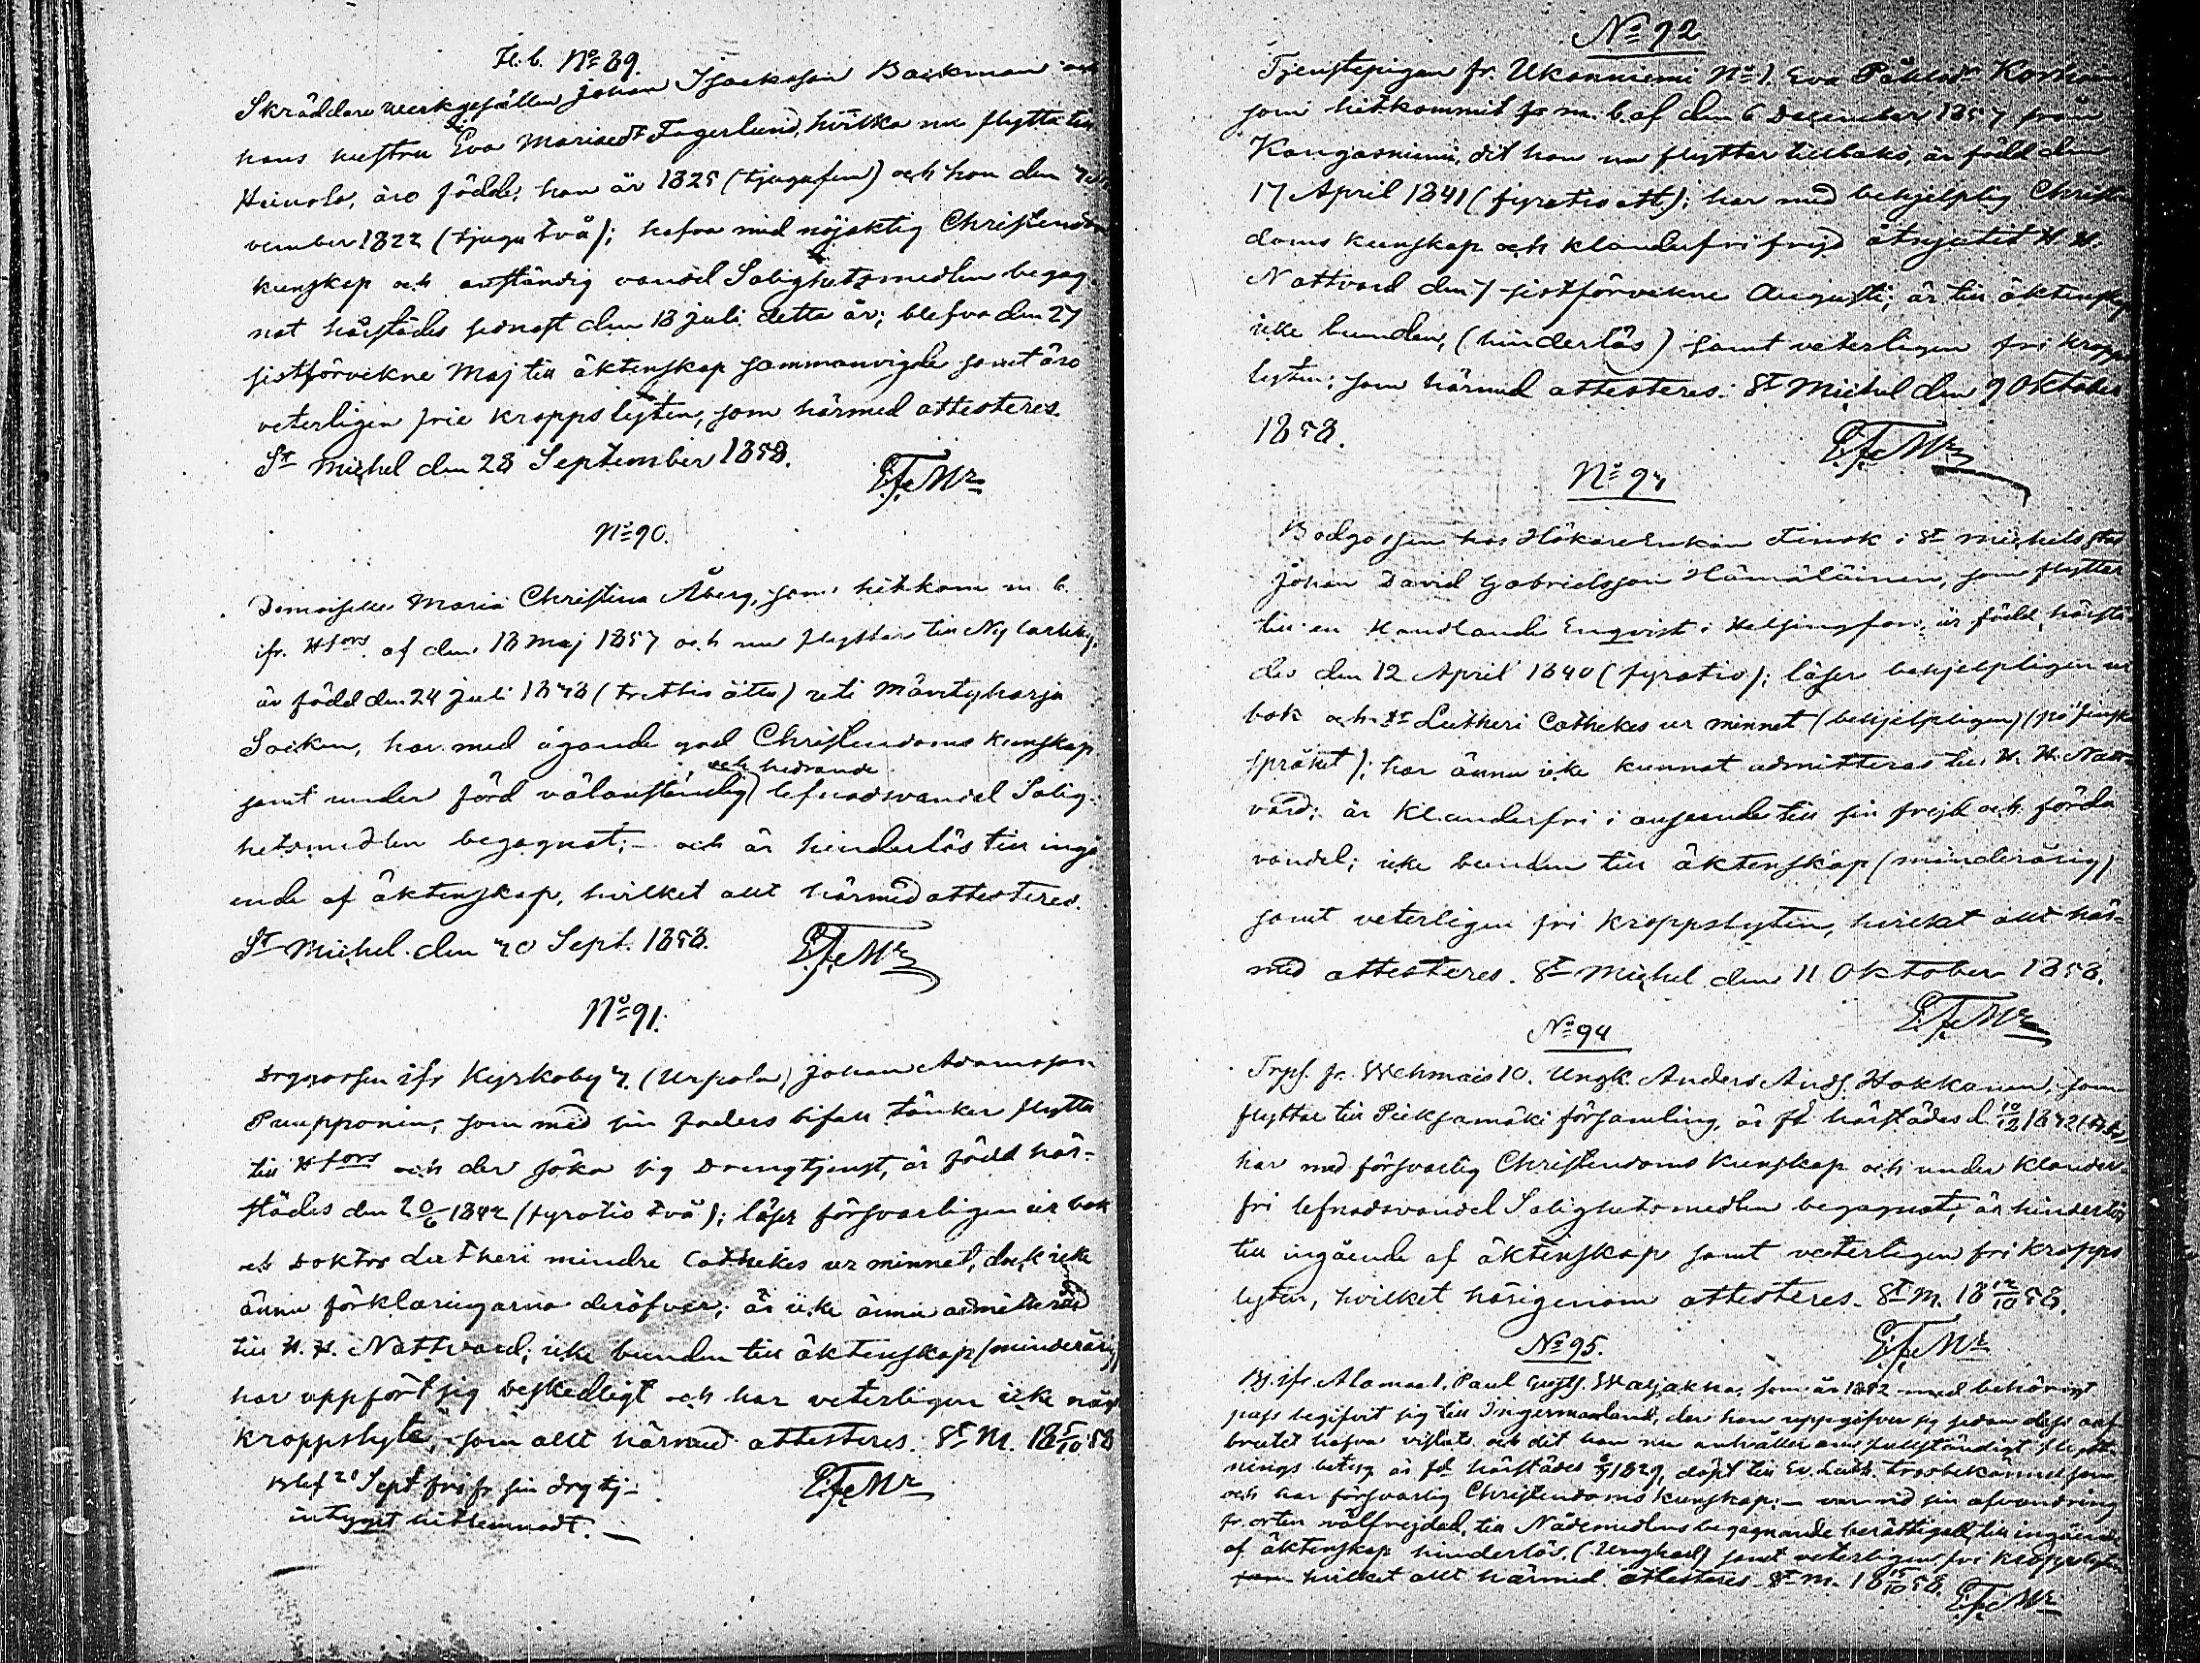 H. b. No 89.
Skräddare werkgesällen Johan Isaaksson Backman och
hans hustru Eva Mariaedr Fagerlund, hvilka nu flytta till
Heinola, äro födde, han år 1825 (tjugufem) och hon den
vember 1822 (tjugu två); hafva med nöjaktig Christendoms
kunskap och anständig vandel Salighetsmedlen begag
nat härstädes sednast den 18 Juli detta år; blefvo den 27
sistförvekne Maj till äktenskap sammanvigde samt äro
veterligen frie kroppslyten, som härmed attesteres.
St Michel den 28 September 1858.
No 90.
Demoiselle Maria Christina Åberg, som hitkom m. b.
ifr. Hfors af den 18 Maj 1857 och nu flyttar till Ny Carleby,
är född den 24 Juli 1838 (trettio åtta) uti Mäntyharju
Socken, har med ägande god Christendoms kunskap
och hedrande
samt under förd välanständig lefnadsvandel Salig-
hetsmedlen begagnat; - och är hinderlös till ingå
ende af äktenskap, hvilket allt härmed attesteres.
St Michel den 30 Sept. 1858.
No 91.
Drgossen ifr Kyrkoby 3 (Urpola) Johan Adamsson
Puupponen, som med sin faders bifall tänker flytta
till Hfors och der söka sig Drengtjenst, är född här-
städes den 20/6 1842 (fyratio två); läser försvarligen ur bok
och Doktor Lutheri mindre Cathekes ur minnet, dock icke
ännu förklaringarna deröfver; är icke ännu admitterad
till H. H. Nattvard; icke bunden till äktenskap (minderårig)
har uppfört sig beskedligt och har veterligen icke någt
kroppslyte, som allt härmed attesteres. St M. 18 5/10 58
Blef 21 Sept fri fr sin drgtj-
intyget hitlemnadt. -
No 92
Tjenstepigan fr. Ukonniemi No 1. Eva Påhlsdr Korhonen
som hitkommit m. b. af den 6 December 1857 från
Kangasniemi, dit hon nu flyttar tillbaks, är född den
17 April 1841 (fyratio ett); har med behjelplig Christen
doms kunskap och klanderfri frejd åtnjutit H. H.
Nattvard den 7 sistförvekne Augusti; är till äktenskap
icke bunden, (hinderlös) samt veterligen fri kropps
lyten; som härmed attesteres. St Michel den 9 Oktober
1858.
No 93
Bodgossen hos Hökareenkan Finok i St Michels stad
Johan David Gabrielsson Hämäläinen, som flyttar
till en Handlande Enqvist i Helsingfors, är född härstä-
des den 12 April 1840 (fyratio); läser behjelpligen ur
bok och Dr Lutheri Cathekes ur minnet (behjelpligen) (på finska
språket); har ännu icke kunnat admitteras till H. H. Natt-
vard; är klanderfri i anseende till sin frejd och förda
vandel; icke bunden till äktenskap (minderårig)
samt veterligen fri kroppslyten, hvilket allt här-
med attesteres. St Michel den 11 Oktober 1858.
No 94
Trps. fr. Wehmais 10. Ungk. Anders Ands. Hokkanen, som
flyttar till Pieksamäki församling, är fd härstädes d 10/12 1832
har med försvarlig Christendoms kunskap och under klander-
fri lefnadsvandel Salighetsmedlen begagnat, är hinderlös
till ingående af äktenskap samt veterligen fri kropps
lyten, hvilket härigenom attesteres. St M. 18 12/10 58.
No 95.
Bs. ifr. Alamaa 1. Paul Gusts. Waljakka, som år 1852 med behörigt
pass begifvit sig till Ingermanland, der han uppgifver sig sedan dess oaf
brutet hafva vistats och dit han nu anhåller om fullständigt flytt-
nings betyg är fd härstädes 1829, döpt till Ev. Luth. trosbekännelsen
och har försvarlig Christendoms kunskap; - var vid sin afvandring
fr. orten välfrejdad, till Nådemedlens begagnande berättigad, till ingående
af äktenskap hinderlös, (Ungkarl) samt veterligen fri kroppslyten
hvilket allt härmed attesteres. St M. 18 15/10 58.